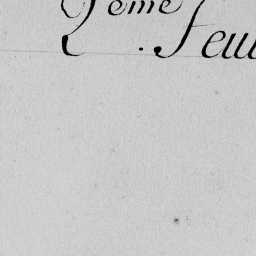 2.eme Feu